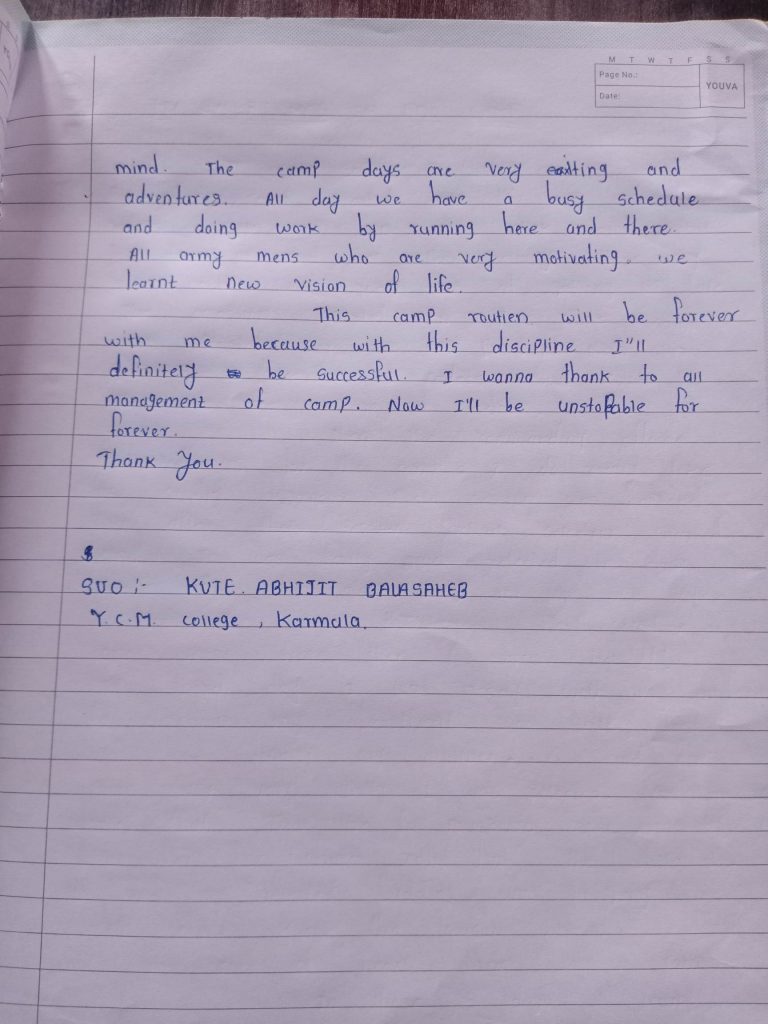 M T W T F S S
Page No.:
YOUVA
Date:
mind. The camp days are very exiting and
adventures. All day we have a busy schedule
and doing work by running here and there.
All army mens who are very motivating. we
learnt new vision of life.
This camp routien will be forever
with me because with this discipline I"ll
definitely be successful. I wanna thank to all
management of camp. Now I'll be unstopable for
forever.
Thank You.
SUO :- KUTE. ABHIJIT BALASAHEB
Y.C.M. college, Karmala.